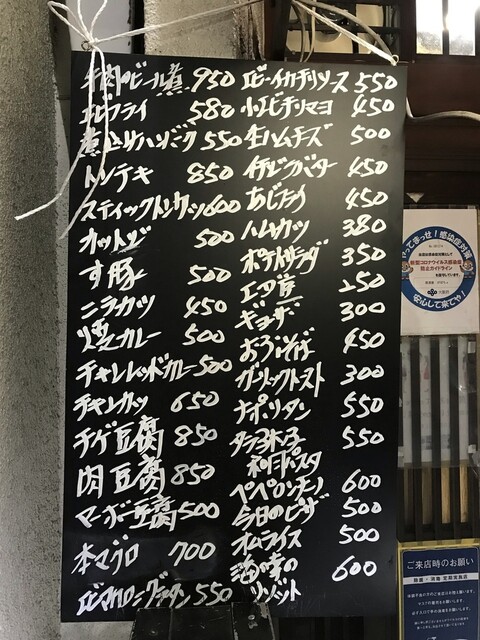 牛肉のビール煮 950
エビフライ 580
煮込みハンバーグ 550
トンテキ 850
スティックトンカツ 600
カットステーキ 500
す豚 500
ニラカツ 450
焼カレー 500
チキンレッドカレー 500
チキンカツ 650
チゲ豆腐 850
肉豆腐 850
マーボー豆腐 500
本マグロ 700
エビマカロニグラタン 550
エビ・イカチリソース 550
小エビチリマヨ 450
生ハムチーズ 500
450
あじたたき 450
ハムカツ 380
ポテトサラダ 350
エダ豆 250
ギョーザ 300
おろしそば 450
ガーリックトースト 300
ナポリタン 550
タラ子
和風パスタ 550
ペペロンチーノ 600
今日のピザ 500
オムライス 500
海の幸の
リゾット 600
やってまっせ!感染症対策
新型コロナウイルス感染症
防止ガイドライン
安心して来てや!
ご来店時のお願い